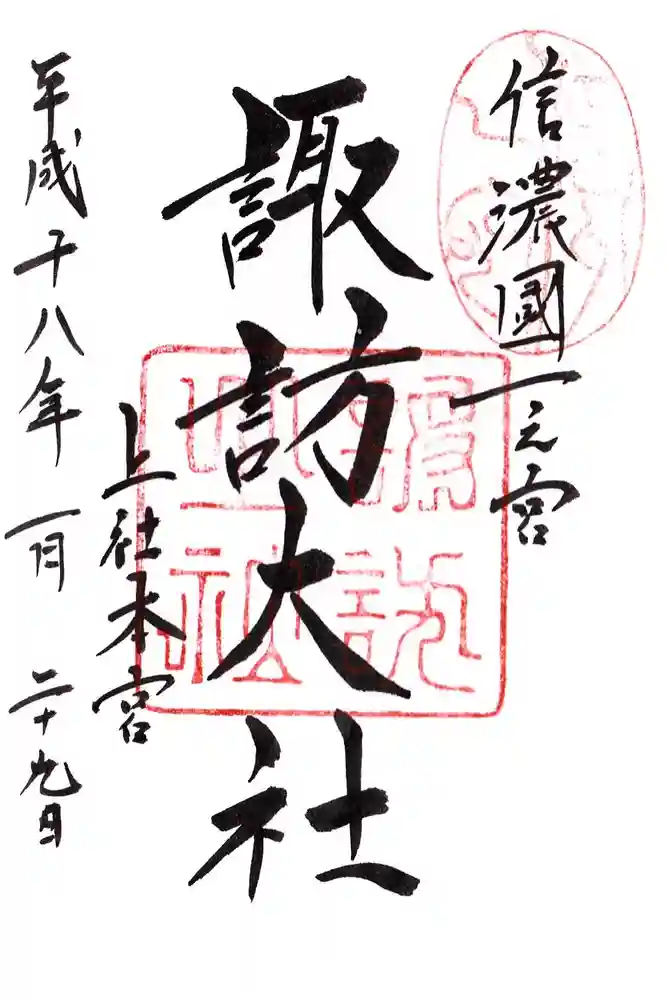 信濃國一之宮
諏訪大社
上社本宮
平成十八年一月二十九日